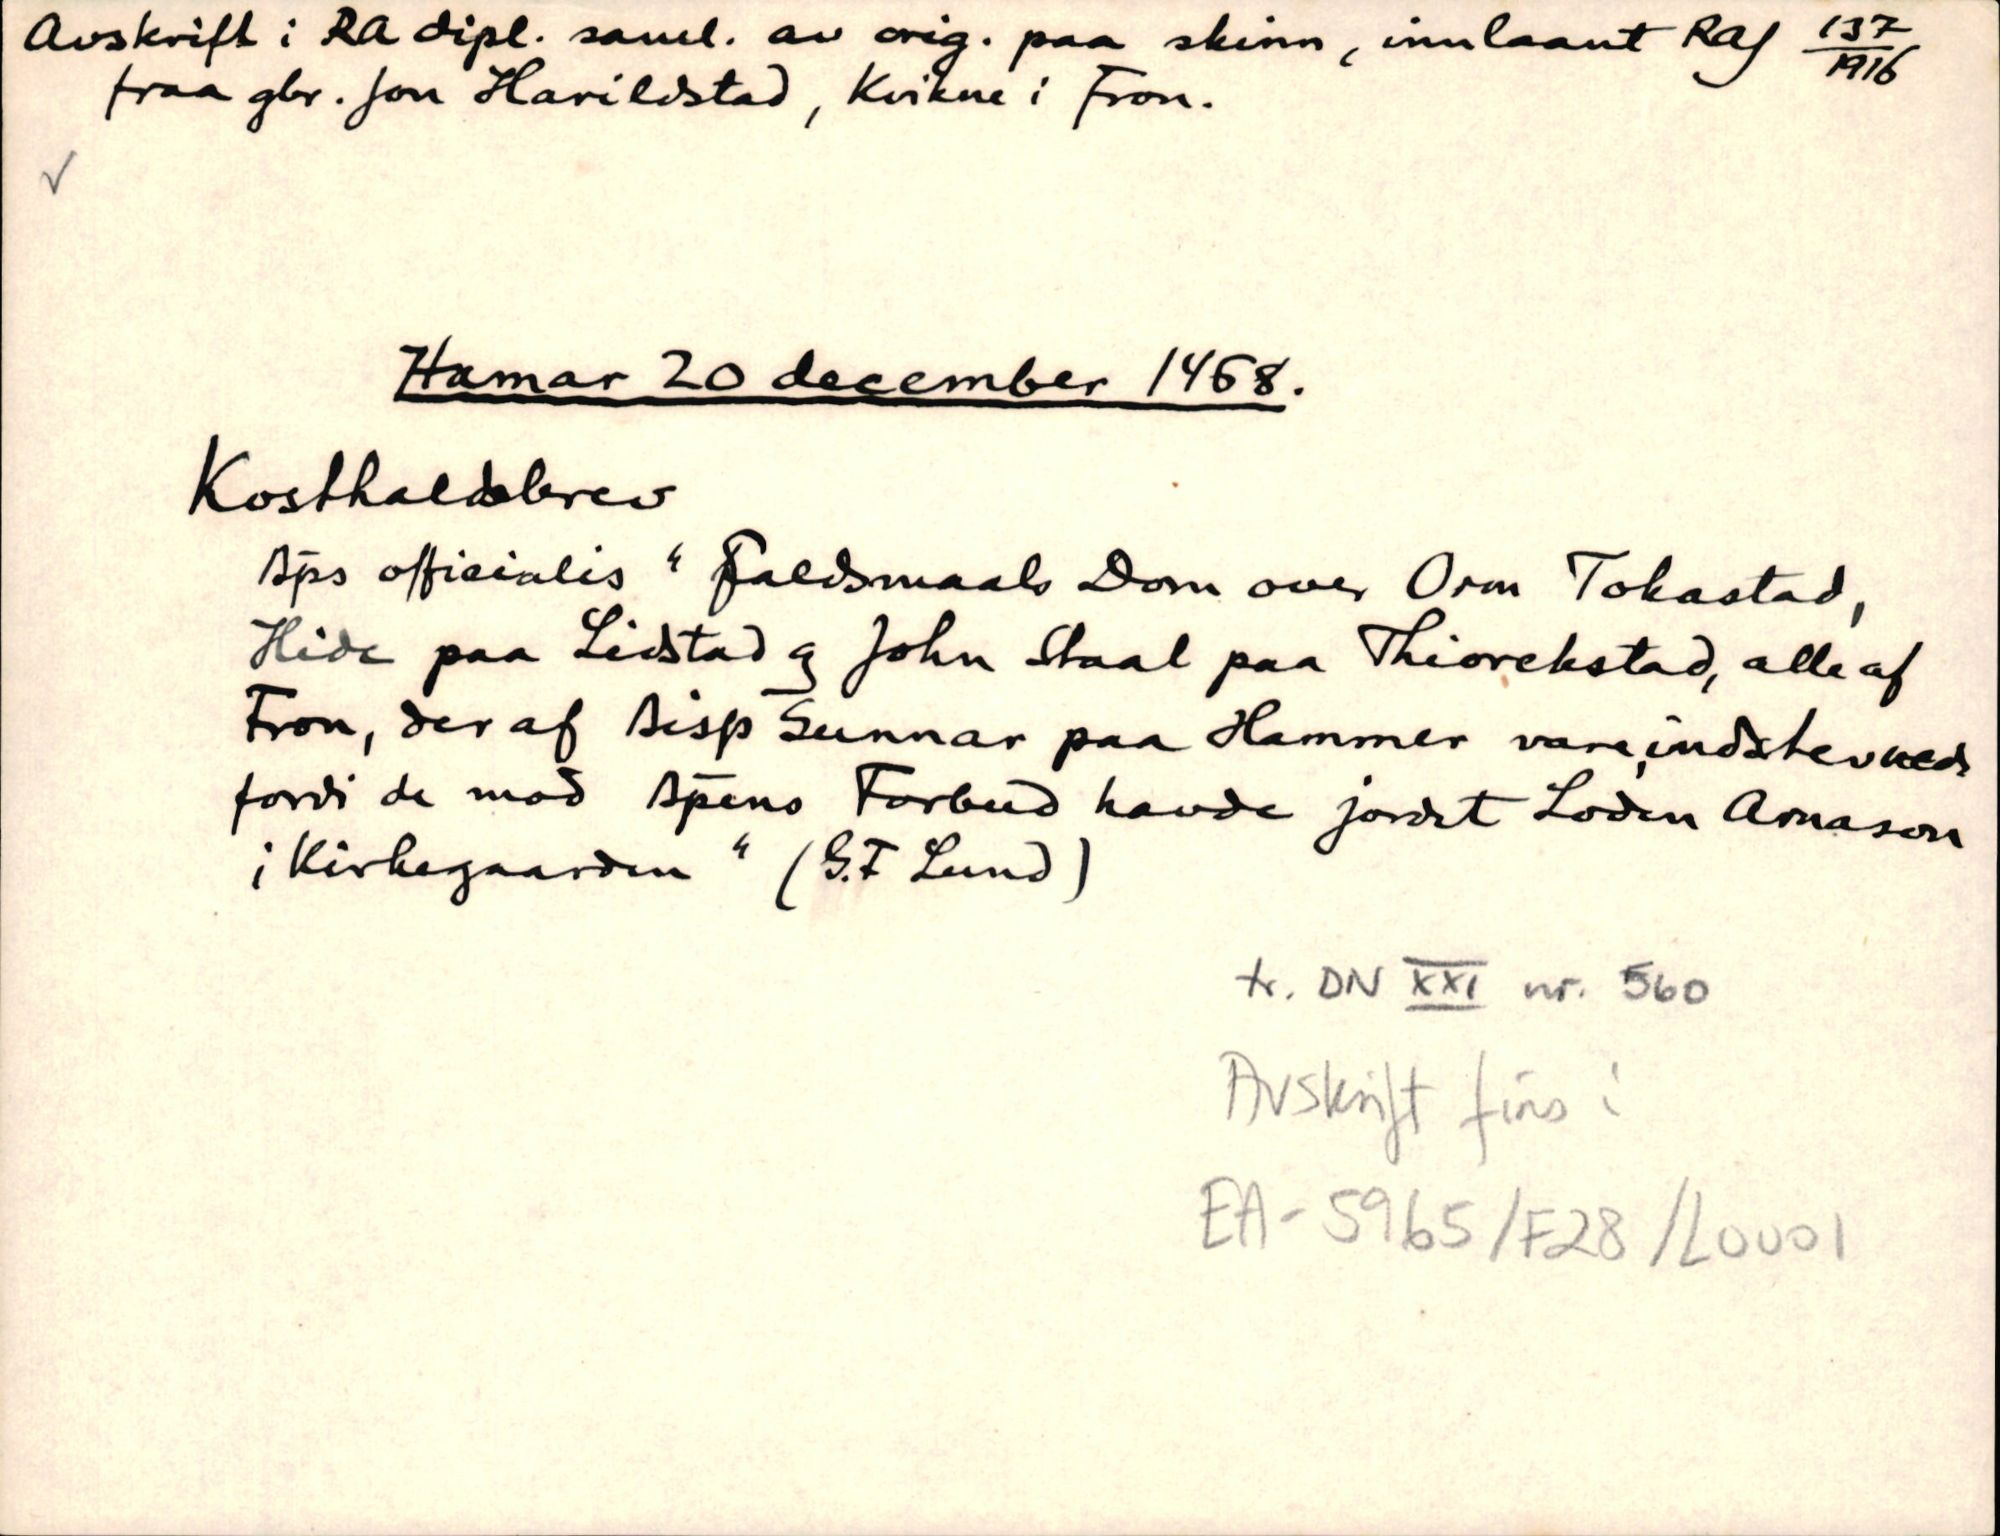 Avskrift i RA dipl. saml. av orig. paa skinn, innlaant RAJ 137/1916
fraa gbr. Jon Harildstad, Kvikne i Fron.
✓
Hamar 20 december 1468.
Kosthaldsbrev
Bps officialis " Faldsmaals Dom over Orm Tokastad,
Hide paa Lidstad og John Staal paa Thiorekstad, alle af
Fron, der af Bisp Gunnar paa Hammer vare indstevned
fordi de mod Bpens Forbud havde jordet Loden Arnason
i Kirkegaarden " (G.F Lund)
tr. DN XXI nr. 560
Avskrift fins i
EA-5965/F28/L0001